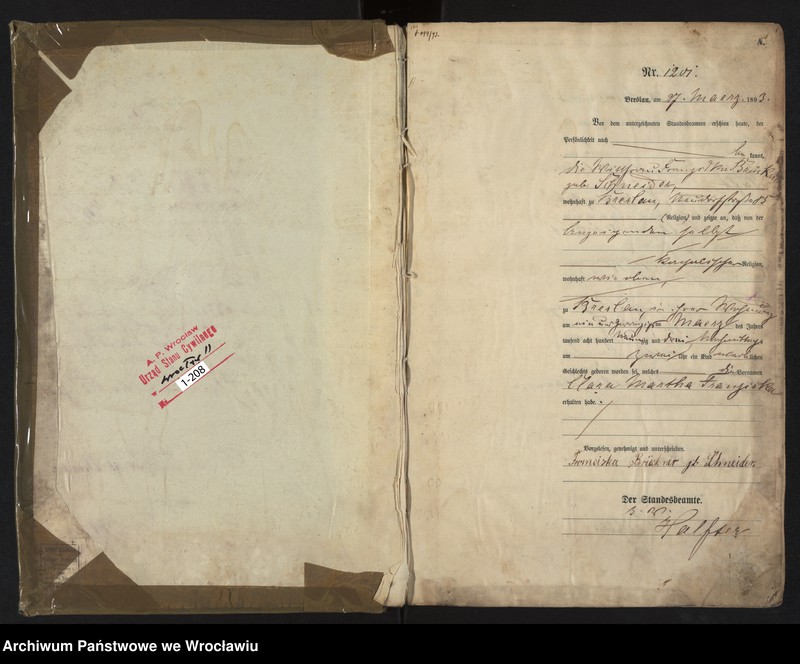 A. P. Wrocław
Urząd Stanu Cywilnego
Wrocław II
1-208
Nr. 1201.
Breslau, am 27. Maerz 1893.
Vor dem unterzeichneten Standesbeamten erschien heute, der
Persönlichkeit nach
kannt,
die
geb. Schneider,
wohnhaft zu Breslau,
Religion, und zeigte an, daß von der
selbst
katholischer Religion,
wohnhaft wie oben,
zu Breslau in ihrer Wohnung
am ein und zwanzigsten Maerz des Jahres
tausend acht hundert neunzig und drei Nachmittags
um zwei Uhr ein Kind weiblichen
Geschlechts geboren worden sei, welches die Vornamen
Clara Martha Franziska
erhalten habe.
Vorgelesen, genehmigt und unterschrieben
Franziska geb. Schneider.
Der Standesbeamte.
Halfter
Archiwum Państwowe we Wrocławiu